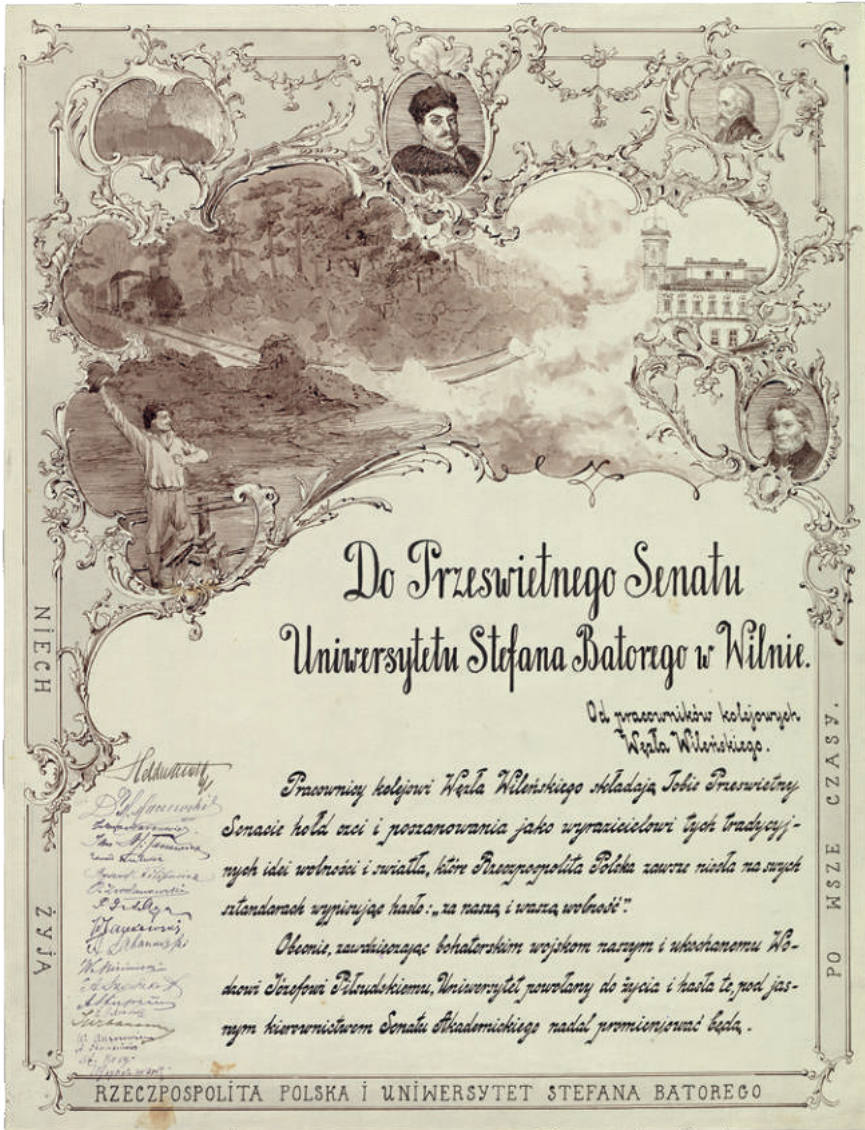 Do Przeswietnego Senatu
Uniwersytetu Stefana Batorego w Wilnie.
Od pracowników kolejowych
Węzła Wileńskiego.
Pracownicy kolejowi Węzła Wileńskiego składają Tobie Przeswietny
Senacie hołd czci i poszanowania jako wyrazicielowi tych tradycyj-
nych idei wolności i światła, które Rzeczpospolita Polska zawsze niosła na swych
sztandarach wypisując hasło: „za naszą i waszą wolność".
Obecnie, zawdzięczając bohaterskim wojskom naszym i ukochanemu Wo-
dzowi Józefowi Piłsudskiemu, Uniwersytet powołany do życia i hasła te, pod jas-
nym kierownictwem Senatu Akademickiego nadal promieniować będą.
NIECH
ŻYJĄ
RZECZPOSPOLITA POLSKA I UNIWERSYTET STEFANA BATOREGO
PO WSZE CZASY.